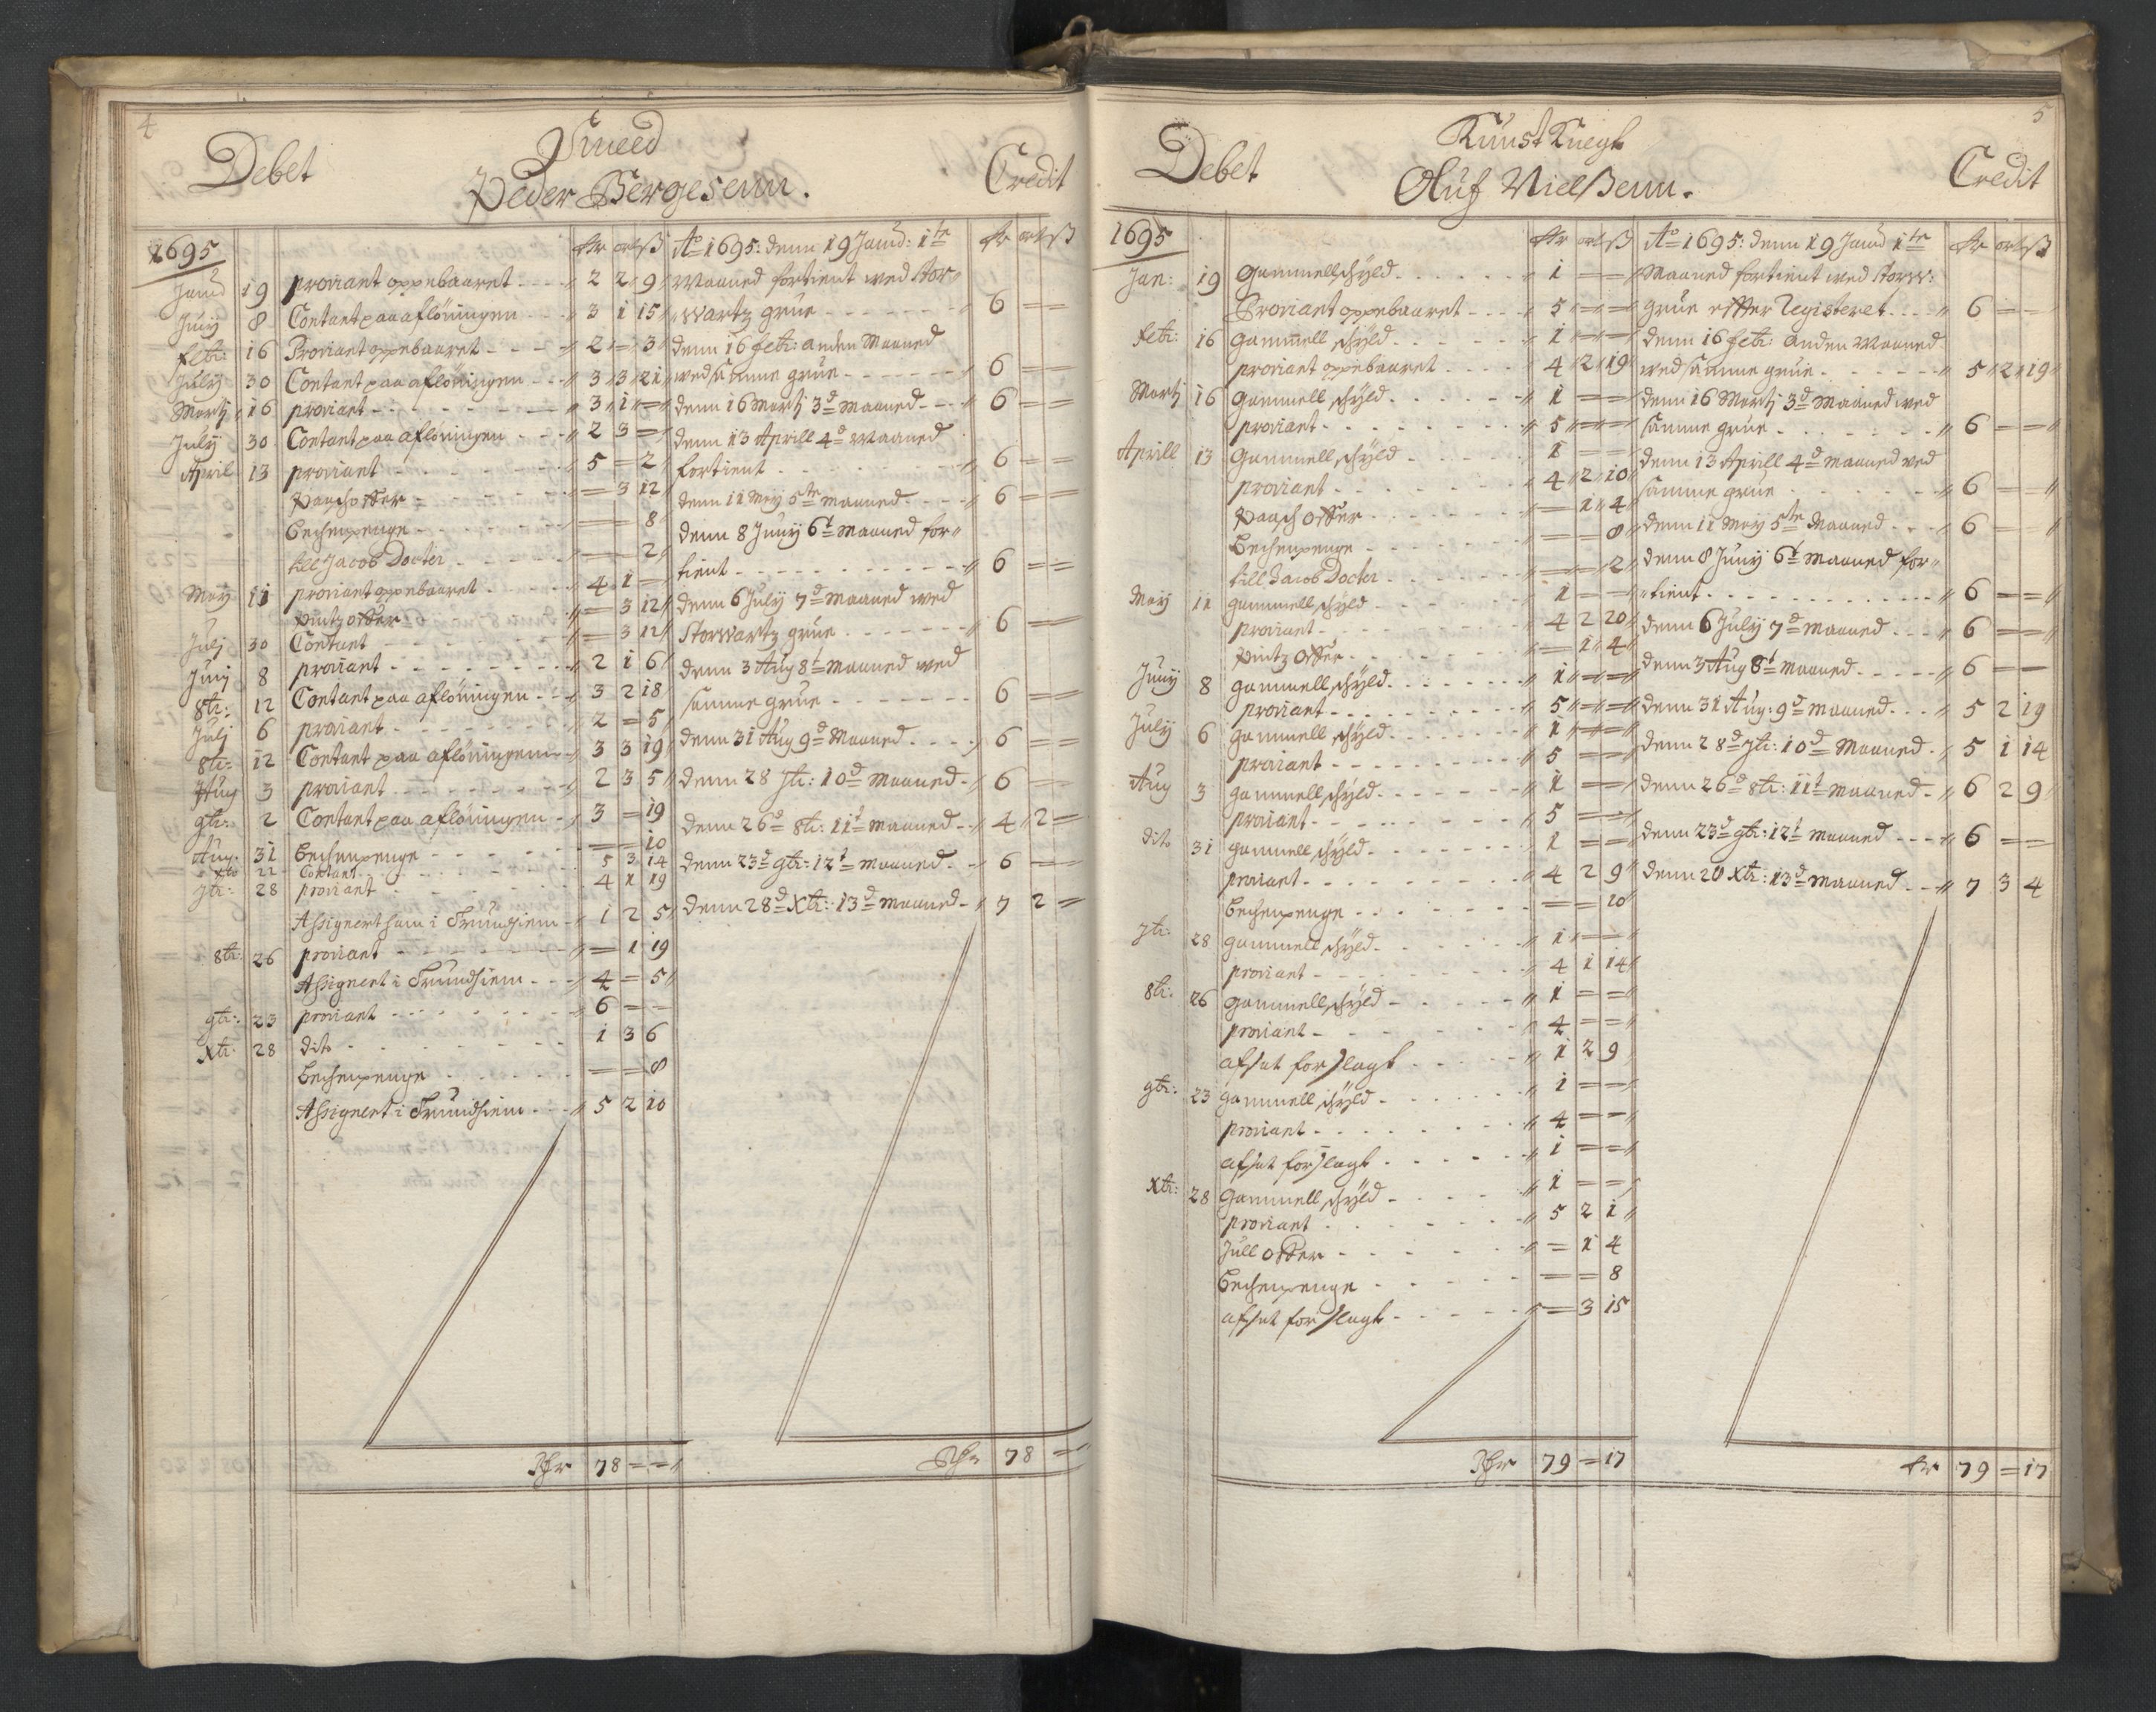 4
Debet
Smeed
Peder Bergesenn.
Credit
1695
dr ort ß
Janu 19 proviant oppebaaret - - - 2 2 9
Junj 8 Contant paa aflöningen - - - 3 1 15
febr: 16 Proviant oppebaaret - - - 2 = 3
July 30 Contant paa aflöningen - - - 3 3 21
Martj 16 proviant - - - 3 1 =
July 30 Contant paa aflöningen - - - 2 3 =
April 13 proviant - - - 5 = 2
Paaschoffer - - - = 3 12
Bechenpenge - - - = = 8
till Jacob Docter - - - = = 2
Maÿ 11 proviant oppebaaret - - - 4 1 =
Pintzoffer = 3 12
Julj 30 Contant - - - = 3 12
Junj 8 proviant - - - 2 1 6
8br: 12 Contant paa aflöningen - - - 3 2 18
Julj 6 proviant - - - 2 = 5
8br: 12 Contant paa aflöningenn - - - 3 3 19
Aug 3 proviant - - - 2 3 5
9br: 2 Contant paa aflöningen - 3 = 19
Aug: 31 Bechenpenge - - - = = 10
Xbr 22 Contant - - - 5 3 14
7br: 28 proviant - - - 4 1 19
Assignert ham i Trundhiem - 1 2 5
8br: 26 proviant - - - = 1 19
Assignert i Trundhiem - - - 4 = 5
9br: 23 proviant - - - 6 = =
Xbr: 28 dito - - - 1 3 6
Bechenpenge - - - = = 8
Assignert i Trundhiem - - - 5 2 10
Rdr 78 = =
Ao 1695: denn 19 Janu: 1te dr ort ß
Maaned fortient wed Stor-
wartz grue - - - 6 = =
denn 16 febr: anden Maaned
wed samme grue - - - 6 = =
denn 16 Martj 3d Maaned - - - 6 = =
denn 13 Aprill 4d Maaned
fortient - - - 6 = =
denn 11 Maÿ 5te maaned - - - 6 = =
denn 8 Junij 6t Maaned for-
tient - - - 6 = =
denn 6 July 7d Maaned wed
Storwartz grue - - - 6 = =
denn 3 Aug 8t Maaned wed
samme grue - - - 6 = =
denn 31 Aug 9d Maaned - - - 6 = =
denn 28 7br: 10d Maaned - 6 = =
denn 26d 8br: 11t Maaned - - 4 2 =
denn 23d 9br: 12t Maaned - 6 = =
denn 28d Xbr: 13d Maaned - 7 2 =
Rdr 78 = =
5
Debet
Kunst Knegt
Oluf Nielßenn.
Credit
1695
dr ort ß
Jan: 19 Gammell schÿld - - - 1 = =
Proviant oppebaaret - - - 5 = =
febr: 16 Gammell schÿld - - - 1 = =
proviant oppebaaret - - - 4 2 19
Martj 16 Gammell schÿld - - - 1 = =
proviant - - - 5 = =
Aprill 13 Gammell schÿld - - - 1 = =
proviant - - - 4 2 10
Paasch offer - - - = 1 4
Bechenpenge - - - = = 8
till Jacob Docter - - - = = 2
Maÿ 11 gammell schÿld - - - 1 = =
proviant - - - 4 2 20
Pintz offer - - - = 1 4
Junij 8 gammell schÿld - - - 1 = =
proviant - - - 5 = =
July 6 gammell schÿld - - - 1 = =
proviant - - - 5 = =
Aug 3 gammell schÿld - - - 1 = =
proviant - - - 5 = =
dito 31 gammell schÿld - - - 1 = =
proviant - - - 4 2 9
Bechenpenge - - - = = 10
7br: 28 gammell schÿld - - - 1 = =
proviant - - - 4 1 14
8br: 26 gammell schÿld - - - 1 = =
proviant - - - 4 = =
afsat for slagt - - - 1 2 9
9br: 23 gammell schÿld - - - 1 = =
proviant - - - 4 = =
afsat for slagt - - - 1 = =
Xbr: 28 Gammell schÿld - - - 1 = =
proviant - - - 5 2 1
Jull offer - - - = 1 4
Bechenpenge - - - = = 8
afsat for slagt - - - = 3 15
Rdr 79 = 17
Ao 1695: denn 19 Janu 1te dr ort ß
Maaned fortient wed Storw:
grue effter Registeret - - - 6 = =
denn 16 febr: anden Maaned
wed samme grue - - - 5 2 19
denn 16 Martj 3d Maaned wed
samme grue - - - 6 = =
denn 13 Aprill 4d Maaned wed
samme grue - - - 6 = =
denn 11 Maÿ 5te Maaned - - - 6 = =
denn 8 Junij 6t Maaned for-
tient - - - 6 = =
denn 6 July 7d Maaned - - - 6 = =
denn 3 Aug 8t Maaned - - - 6 = =
denn 31 Aug: 9d Maaned - - - 5 2 19
denn 28d 7br: 10d Maaned - 5 1 14
denn 26d 8br: 11t Maaned - 6 2 9
denn 23d 9br: 12t Maaned - - - 6 = =
denn 28 Xbr: 13d Maaned - - 7 3 4
dr 79 = 17